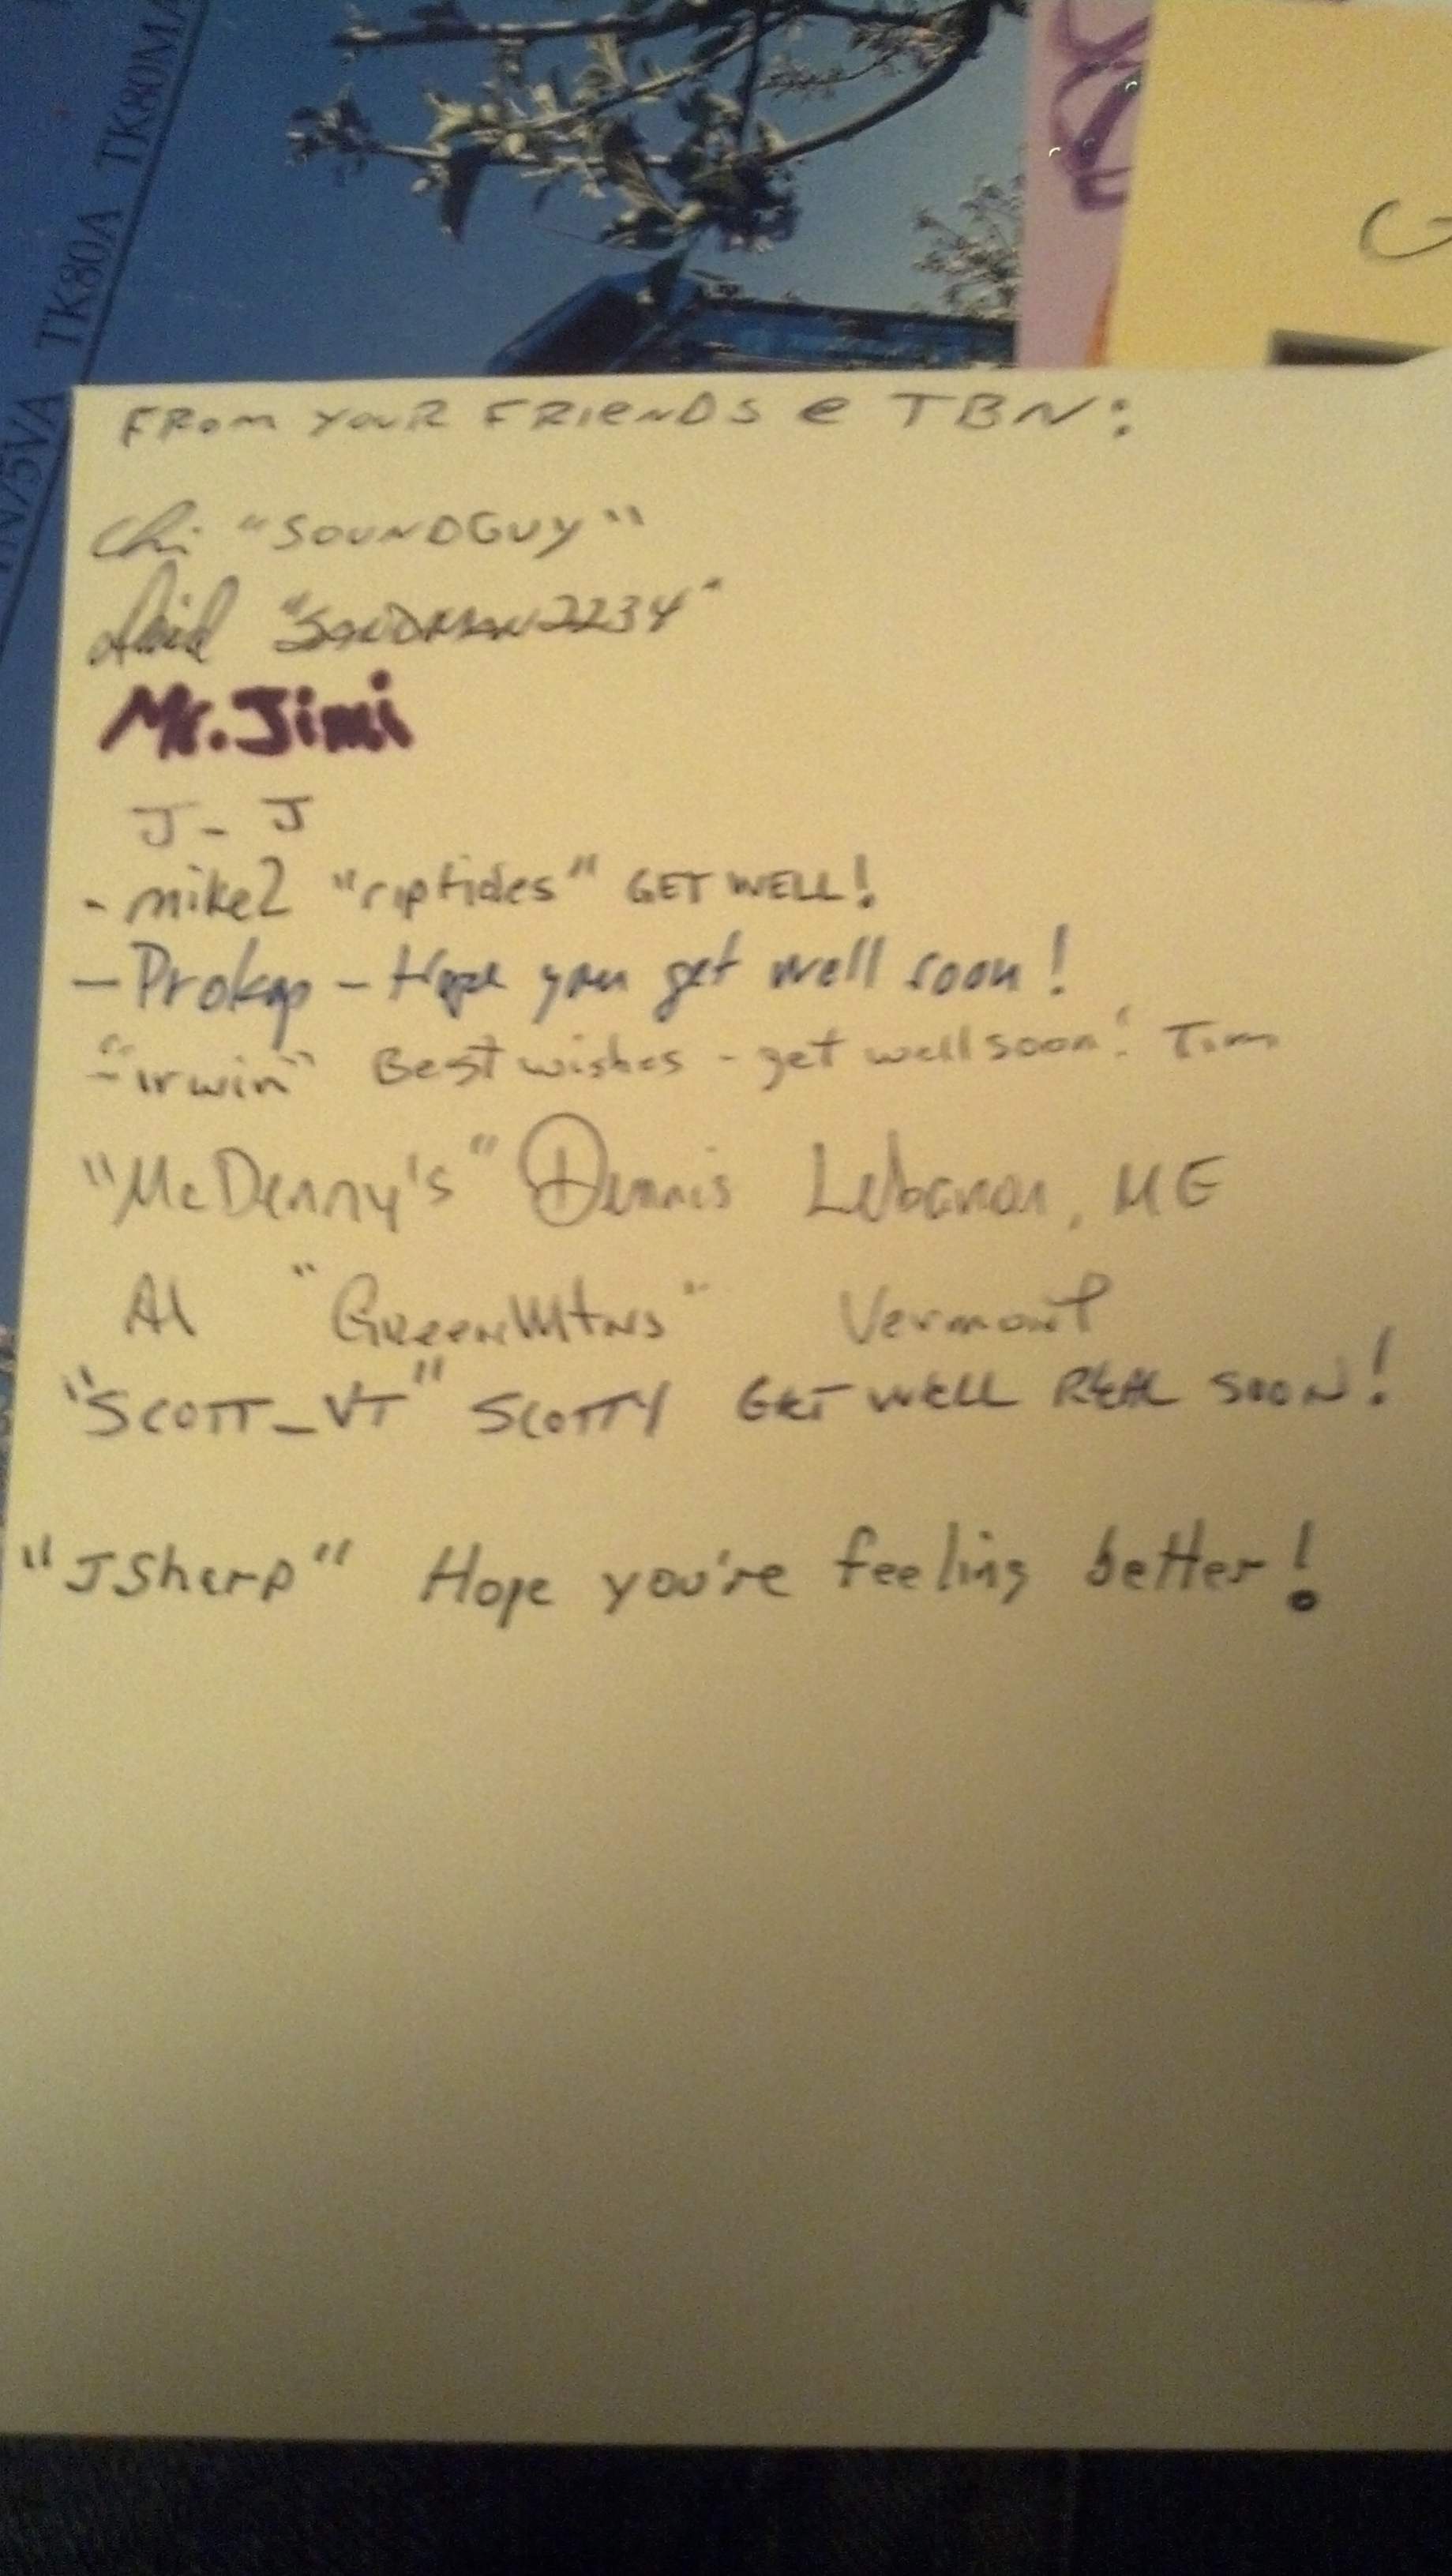 TK80A TK80MA
N/5VA
FROM YOUR FRIENDS @ TBN:
"SOUNDGUY"
David "SANDMAN2234"
Mr. Jimi
J- J
- mike2 "riptides" GET WELL!
- Prokop - Hope you get well soon!
- "irwin" Best wishes - get well soon! Tim
"McDenny's" Dennis Lebanon, ME
Al "GreenMtns" Vermont
"SCOTT_VT" SCOTTY GET WELL REAL SOON!
"JSharp" Hope you're feeling better!